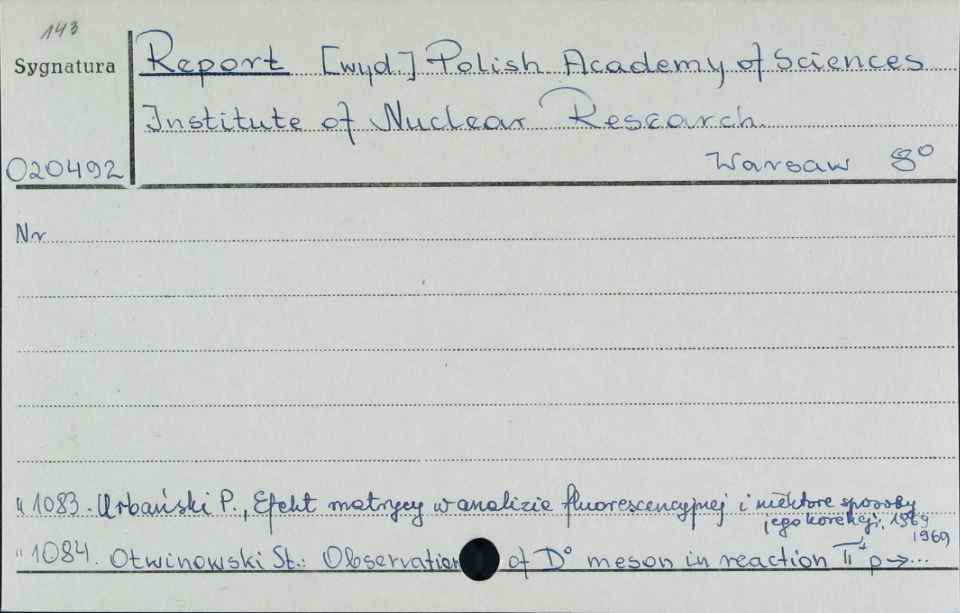 143
Sygnatura
Report [wyd.] Polish Academy of Sciences
Institute of Nuclear Research.
020492
Warsaw 8°
Nr
" 1083. Urbański P., Efekt matrycy w analizie fluorescencyjnej i niektóre sposoby
jego korekcji, 1969
1969
" 1084. Otwinowski St.: Observation of D° meson in reaction p →...